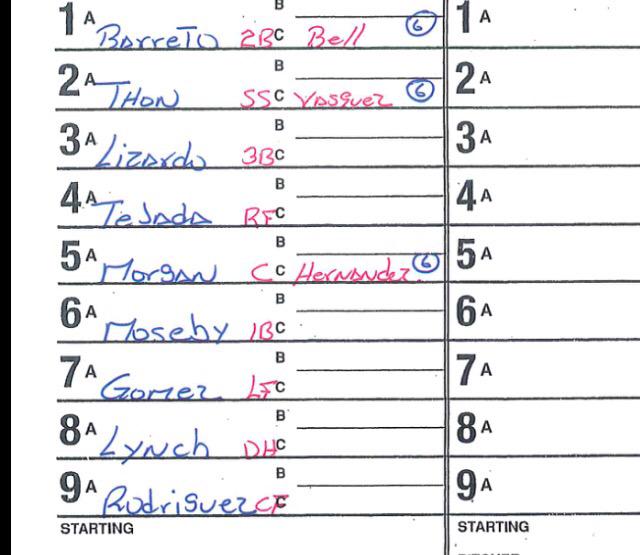 B
1 A Barreto 2B C Bell 6 1 A
B
2 A Thon SS C Vasquez 6 2 A
B
3 A Lizardo 3B C 3 A
B
4 A Tejada RF C 4 A
B
5 A Morgan C C Hernandez 6 5 A
B
6 A Moseby 1B C 6 A
B
7 A Gomez LF C 7 A
B
8 A Lynch DH C 8 A
B
9 A Rodriguez CF C 9 A
STARTING STARTING